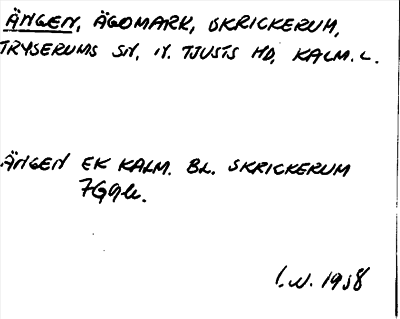 ÄNGEN, ÄGOMARK, SKRICKERUM,
TRYSERUMS SN, N. TJUSTS HD, KALM. L.
ÄNGEN EK KALM. BL. SKRICKERUM
7G9h.
I.W. 1958